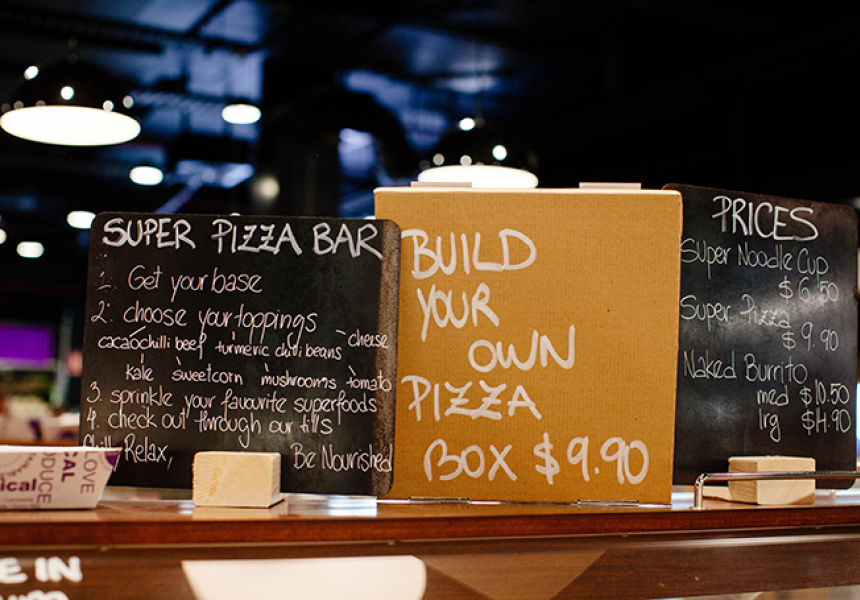 SUPER PIZZA BAR
1. Get your base
2. choose your toppings
cacao chilli beef turmeric chilli beans cheese
kale sweetcorn mushrooms tomato
3. sprinkle your favourite superfoods
4. check out through our tills
Chill Relax, Be Nourished
BUILD
YOUR
OWN
PIZZA
BOX $9.90
PRICES
Super Noodle Cup
$6.50
Super Pizza
$9.90
Naked Burrito
med $10.50
lrg
LOVE
CAL
PRODUCE
E IN